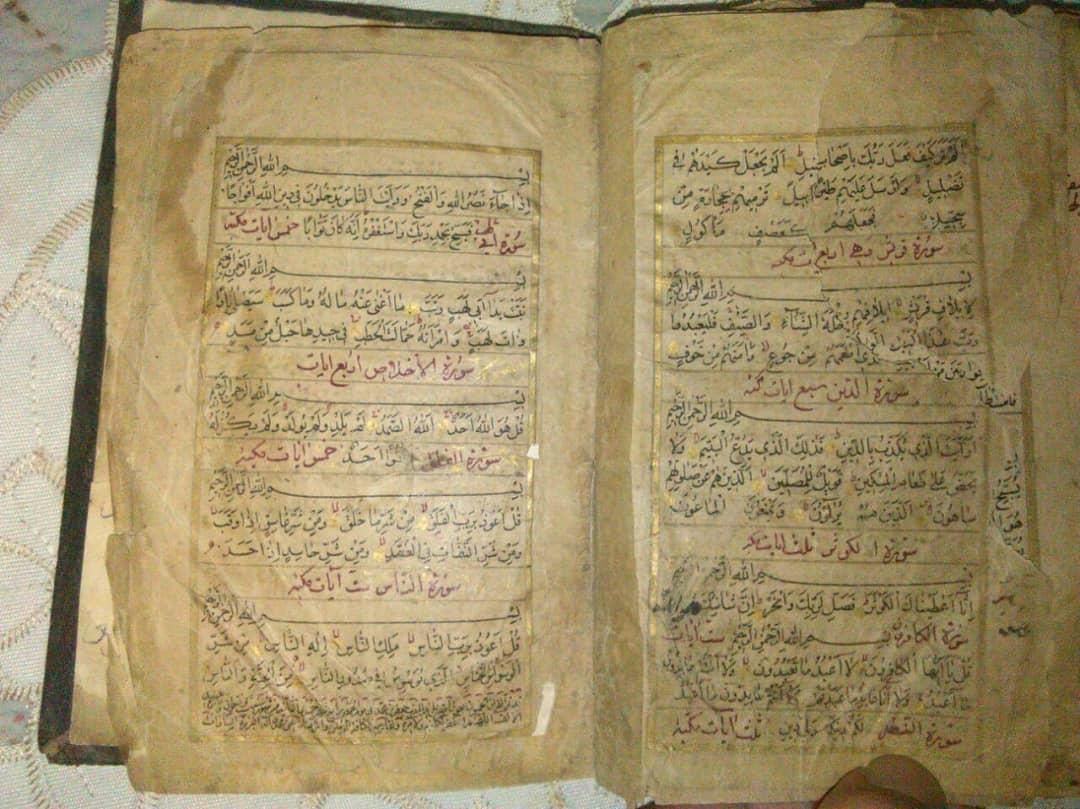 الم تر كيف فعل ربك باصحاب الفيل الم يجعل كيدهم في
تضليل وارسل عليهم طيرا ابابيل ترميهم بحجارة من
سجيل فجعلهم كعصف مأكول
سورة قريش وهي اربع ايات مكية
بسم الله الرحمن الرحيم
لايلاف قريش ايلافهم رحلة الشتاء والصيف فليعبدوا
رب هذا البيت الذي اطعمهم من جوع وآمنهم من خوف
سورة الدين سبع ايات مكية
بسم الله الرحمن الرحيم
ارايت الذي يكذب بالدين فذلك الذي يدع اليتيم ولا
يحض على طعام المسكين فويل للمصلين الذين هم عن صلوتهم
ساهون الذين هم يراؤن ويمنعون الماعون
سورة الكوثر ثلث ايات مكية
بسم الله الرحمن الرحيم
انا اعطيناك الكوثر فصل لربك وانحر ان شانئك هو
سورة الكافرون بسم الله الرحمن الرحيم ست ايات
قل يا ايها الكافرون لا اعبد ما تعبدون ولا انتم عابدون
ما اعبد ولا انا عابد ما عبدتم ولا انتم عابدون ما اعبد
سورة النصر لكم دينكم ولي دين ثلث ايات مكية
بسم الله الرحمن الرحيم
اذا جاء نصر الله والفتح ورايت الناس يدخلون في دين الله افواجا
سورة ابي لهب فسبح بحمد ربك واستغفره انه كان توابا خمس ايات مكية
بسم الله الرحمن الرحيم
تبت يدا ابي لهب وتب ما اغنى عنه ماله وما كسب سيصلى نارا
ذات لهب وامرأته حمالة الحطب في جيدها حبل من مسد
سورة الاخلاص اربع ايات
بسم الله الرحمن الرحيم
قل هو الله احد الله الصمد لم يلد ولم يولد ولم يكن له
سورة الفلق كفوا احد خمس ايات مكية
بسم الله الرحمن الرحيم
قل اعوذ برب الفلق من شر ما خلق ومن شر غاسق اذا وقب
ومن شر النفاثات في العقد ومن شر حاسد اذا حسد
سورة الناس ست آيات مكية
بسم الله الرحمن الرحيم
قل اعوذ برب الناس ملك الناس اله الناس من شر
الوسواس الخناس الذي يوسوس في صدور الناس من الجنة والناس